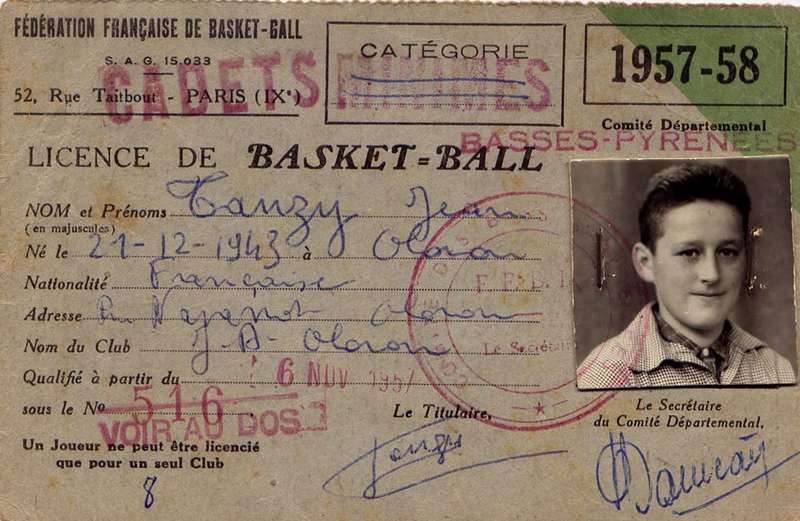 FÉDÉRATION FRANÇAISE DE BASKET-BALL
S. A. G. 15.033
52, Rue Taitbout - PARIS (IXe)
CADETS
CATÉGORIE
MINIMES
1957-58
Comité Départemental
BASSES-PYRENEES
LICENCE DE BASKET=BALL
NOM et Prénoms Tauzy Jean
(en majuscules)
Né le 21-12-1943 à Oloron
Nationalité Française
Adresse Oloron
Nom du Club J.A. Oloron
Qualifié à partir du 6 NOV 1957
sous le No 516
VOIR AU DOS
Le Titulaire,
Le Secrétaire
du Comité Départemental,
Un Joueur ne peut être licencié
que pour un seul Club
8
F. F. B.
Le Secrét